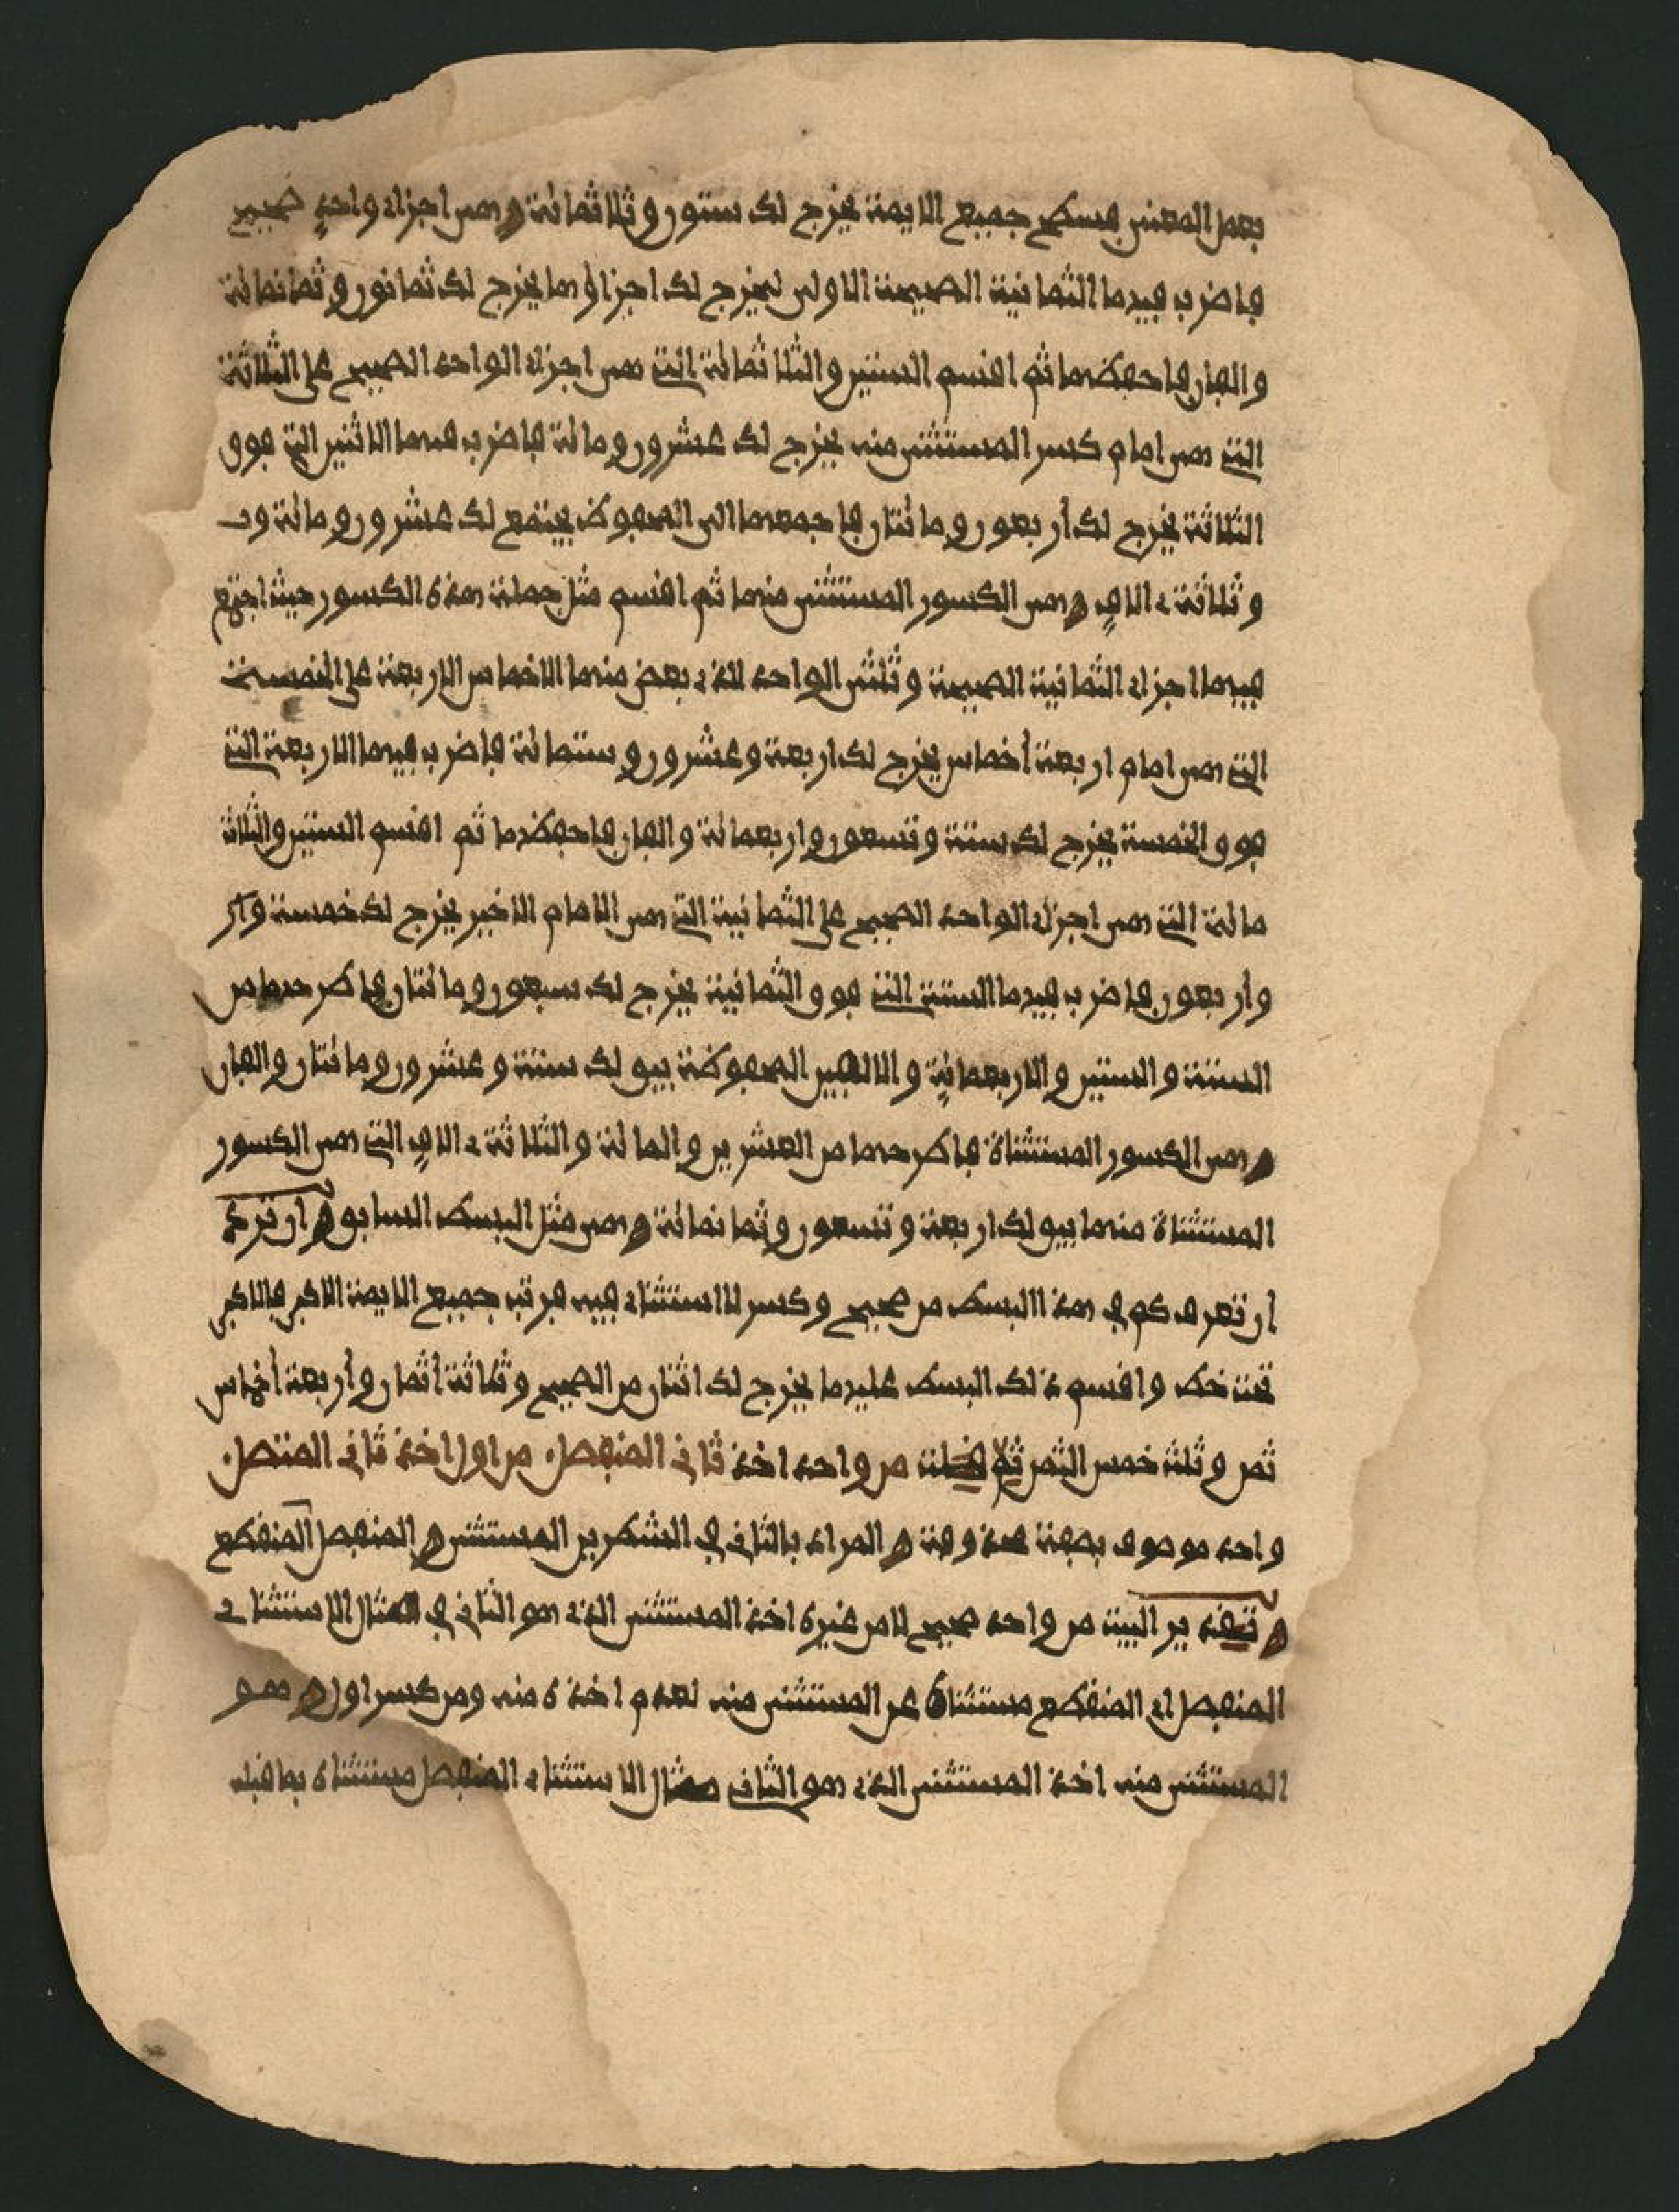 بعمل المعنى بسط جميع الايمة يخرج لك ستون وثلاثمائة وهي اجزاء واحد صحيح
فاضرب فيها الثمانية الصحيحة الاولى ليخرج لك اجزاؤها يخرج لك ثمانون وثمانمائة
والفان فاحفظها ثم اقسم الستين والثلاثمائة التي هي اجزاء الواحد الصحيح على الثلاثة
التي هي امام كسر المستثنى منه يخرج لك عشرون ومائة فاضرب فيها الاثنين التي فوق
الثلاثة يخرج لك أربعون ومائتان فاجمعها الى المحفوظ يجتمع لك عشرون ومائة
وثلاثة ءالافٍ وهي الكسور المستثنى منها ثم اقسم مثل جملة هذه الكسور حيث اجتمع
فيها اجزاء الثمانية الصحيحة وثلثى الواحد الذي بعض منها الاخماس الاربعة على الخمسة
التي هي امام اربعة أخماس يخرج لك اربعة وعشرون وستمائة فاضرب فيها الاربعة التي
فوق الخمسة يخرج لك ستة وتسعون واربعمائة والفان فاحفظها ثم اقسم الستين والثلاث
مائة التي هي اجزاء الواحد الصحيح على الثمانية التي هي الامام الاخير يخرج لك خمسة وأر
وأربعون فاضرب فيها الستة التي فوق الثمانية يخرج لك سبعون ومائتان فاطرحها من
الستة والستين والاربعمائةٍ والالفين المحفوظة يبق لك ستة وعشرون ومائتان والفان
وهي الكسور المستثناة فاطرحها من العشرين والمائة والثلاثة ءالافٍ التي هي الكسور
المستثناة منها يبق لك اربعة وتسعون وثمانمائة وهي مثل البسط السابق وان ترد
أن تعرف كم في هذا البسط من صحيح وكسر لا استثناء فيه فرتب جميع الايمة الاكبر فالاكبر
تحت خط واقسم ذلك البسط عليها يخرج لك اثنان من الصحيح وثلاثة أثمان وأربعة أخماس
ثمن وثلث خمس الثمن من واحد اخذ ثانى المنفصل. من اول اخذ ثانى المتصل.
واحد موصوف بصفة محذوفة والمراد بالثاني في الشطرين المستثنى والمنفصل المنقطع
وتقدير البيت من واحد صحيح لا من غيره اخذ المستثنى الذي هو الثاني في مثال الاستثناء
المنفصل اي المنقطع مستثناه عن المستثنى منه لعدم اخذه منه ومن كسر اول وهو
المستثنى منه اخذ المستثنى الذي هو الثاني مثال الاستثناء المنفصل مستثناه بما قبله